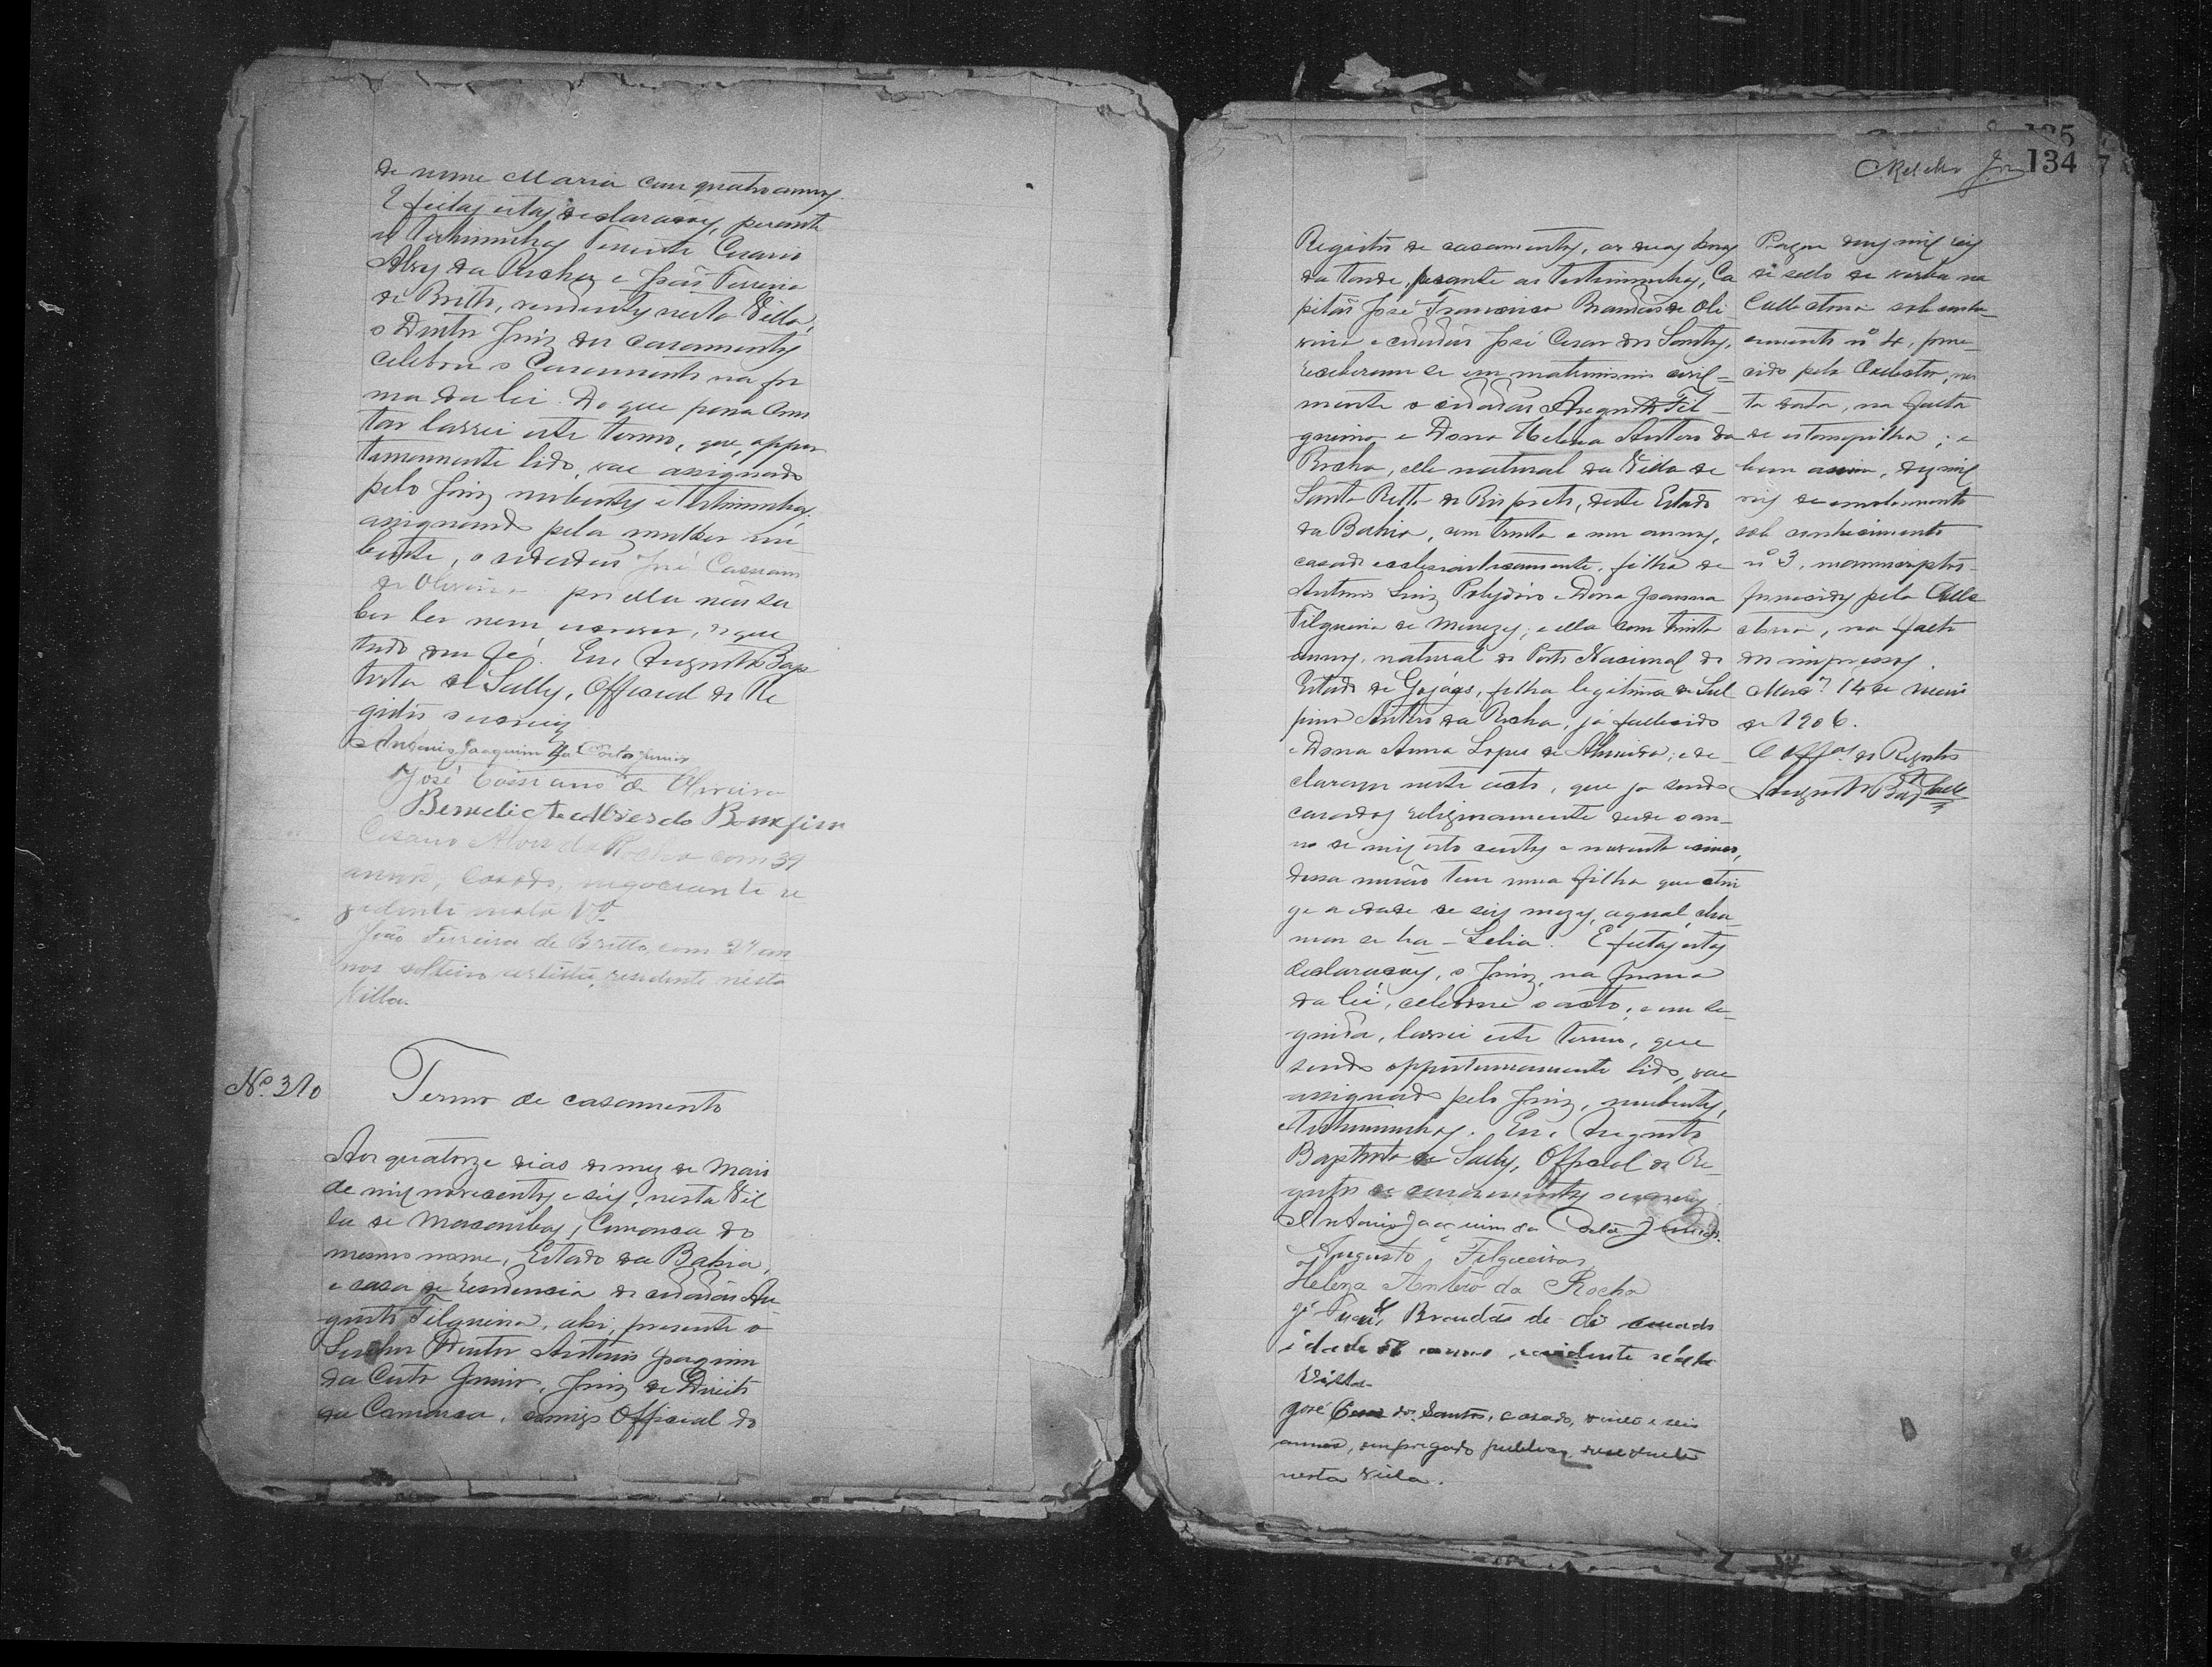 de nome Maria com quatro annos.
E feitas estas declarações, perante
as testimunhas Tenente Cesario
Alves da Rocha e João Ferreira
de Britto, residentes nesta Villa,
o Doutor Juiz dos casamentos
celebrou o Casamento na for
ma da lei. Do que para cons
tar lavrei este termo, que, oppor
tunamente lido, vae assignado
pelo Juiz nubentes e testimunhas,
assignando pela mulher nu
bente, o cidadão José Cassiano
de Oliveira por ella não sa
ber ler nem escrever, do que
tudo dou fé. Eu, Augusto Bap
tista de Sully, Official do Re
gisto escrevy
Antonio Joaquim da Costa Junior
José Cassiano de Oliveira
Benedicto Alves do Bomfim
Cesario Alves da Rocha com 39
annos, casado, negociante re
zidente nesta Vª
João Ferreira de Britto, com 27 an
nos solteiro artista, residente nesta
Villa.
Nº 310
Termo de casamento
Aos quatorze dias do mez de Maio
de mil novecentos e seis, nesta Vil
la de Macaubas, Comarca do
mesmo nome, Estado da Bahia,
e casa de residencia do cidadão Au
gusto Filgueira, ahi, presente o
Senhor Doutor Antonio Joaquim
da Costa Junior, Juiz de Direito
da Comarca, comigo Official do
135
134 7
Registo de casamentos, as duas horas
da tarde, perante as testimunhas, Ca
pitão José Francisco Brandão de Oli
veira e cidadão José Cesar dos Santos,
receberam se em matrimonio civil=
mente o cidadão Augusto Fil_
gueira e Dona Helena Antero da
Rocha, elle natural da Villa de
Santa Ritta do Rio preto, deste Estado
da Bahia, com trinta e um annos,
casado ecclesiasticamente, filho de
Antonio Luiz Polydoro e Dona Joanna
Filgueira de Menezes; e ella com trinta
annos, natural do Porto Nacional do
Estado de Goyáes, filha legitima de Sul
pino Antero da Rocha, já fallecido
e Dona Anna Lopes de Almeida; e de_
claram neste acto, que ja sendo
casados religiosamente desde o an_
no de mil oito centos e noventa e cinco,
dessa união tem uma filha que atin
ge a edade de seis mezes, a qual, cha_
mar se ha - Lelia. E feitas estas
declarações, o Juiz, na forma
da lei, celebrou o acto; e em se_
guida, lavrei este termo, que
sendo opportunamente lido, vae
assignado pelo Juiz, nubentes,
e testimunhas. Eu, Augusto
Baptista de Sully, Official do Re_
gisto de casamentos escrevy.
Antonio Joaquim da Costa Junior.
Augusto Filgueiras
Helena Antero da Rocha
Jé Franco Brandão de Olª casado
idade 58 annos residente nésta
Villa
José Cesar dos Santos, casado, vinte e seis
annos, empregado publico, residente
nesta villa.
Pagou dous mil reis
de sello de verba na
Collectoria sob conhe_
cimento nº 4, forne_
cido pelo Collector, nes
ta data, na falta
de estampilha; e
bem assim, dez mil
reis de emolumento
sob conhecimento
nº 3, manuscriptos
fornecidos pela Colle
ctoria, na falta
dos impressos.
Macas 14 de Maio
de 1906.
O Offal do Registo
Augusto Bapta Sully